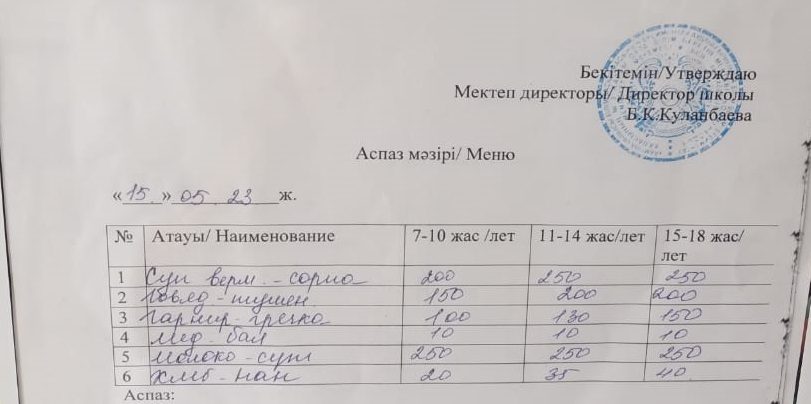 Бекітемін/Утверждаю
Мектеп директоры/ Директор школы
Б.К.Куланбаева
Аспаз мәзірі/ Меню
«15.» 05. 23 ж.
№ Атауы/ Наименование 7-10 жас /лет 11-14 жас/лет 15-18 жас/
лет
1 Суп верм. - сорпа 200 250 250
2 Говяд - тушен 150 200 200
3 Гарнир - гречка 100 130 150
4 Мед - бал 10 10 10
5 Молоко - сүт 250 250 250
6 Хлеб - нан 20 35 40
Аспаз: